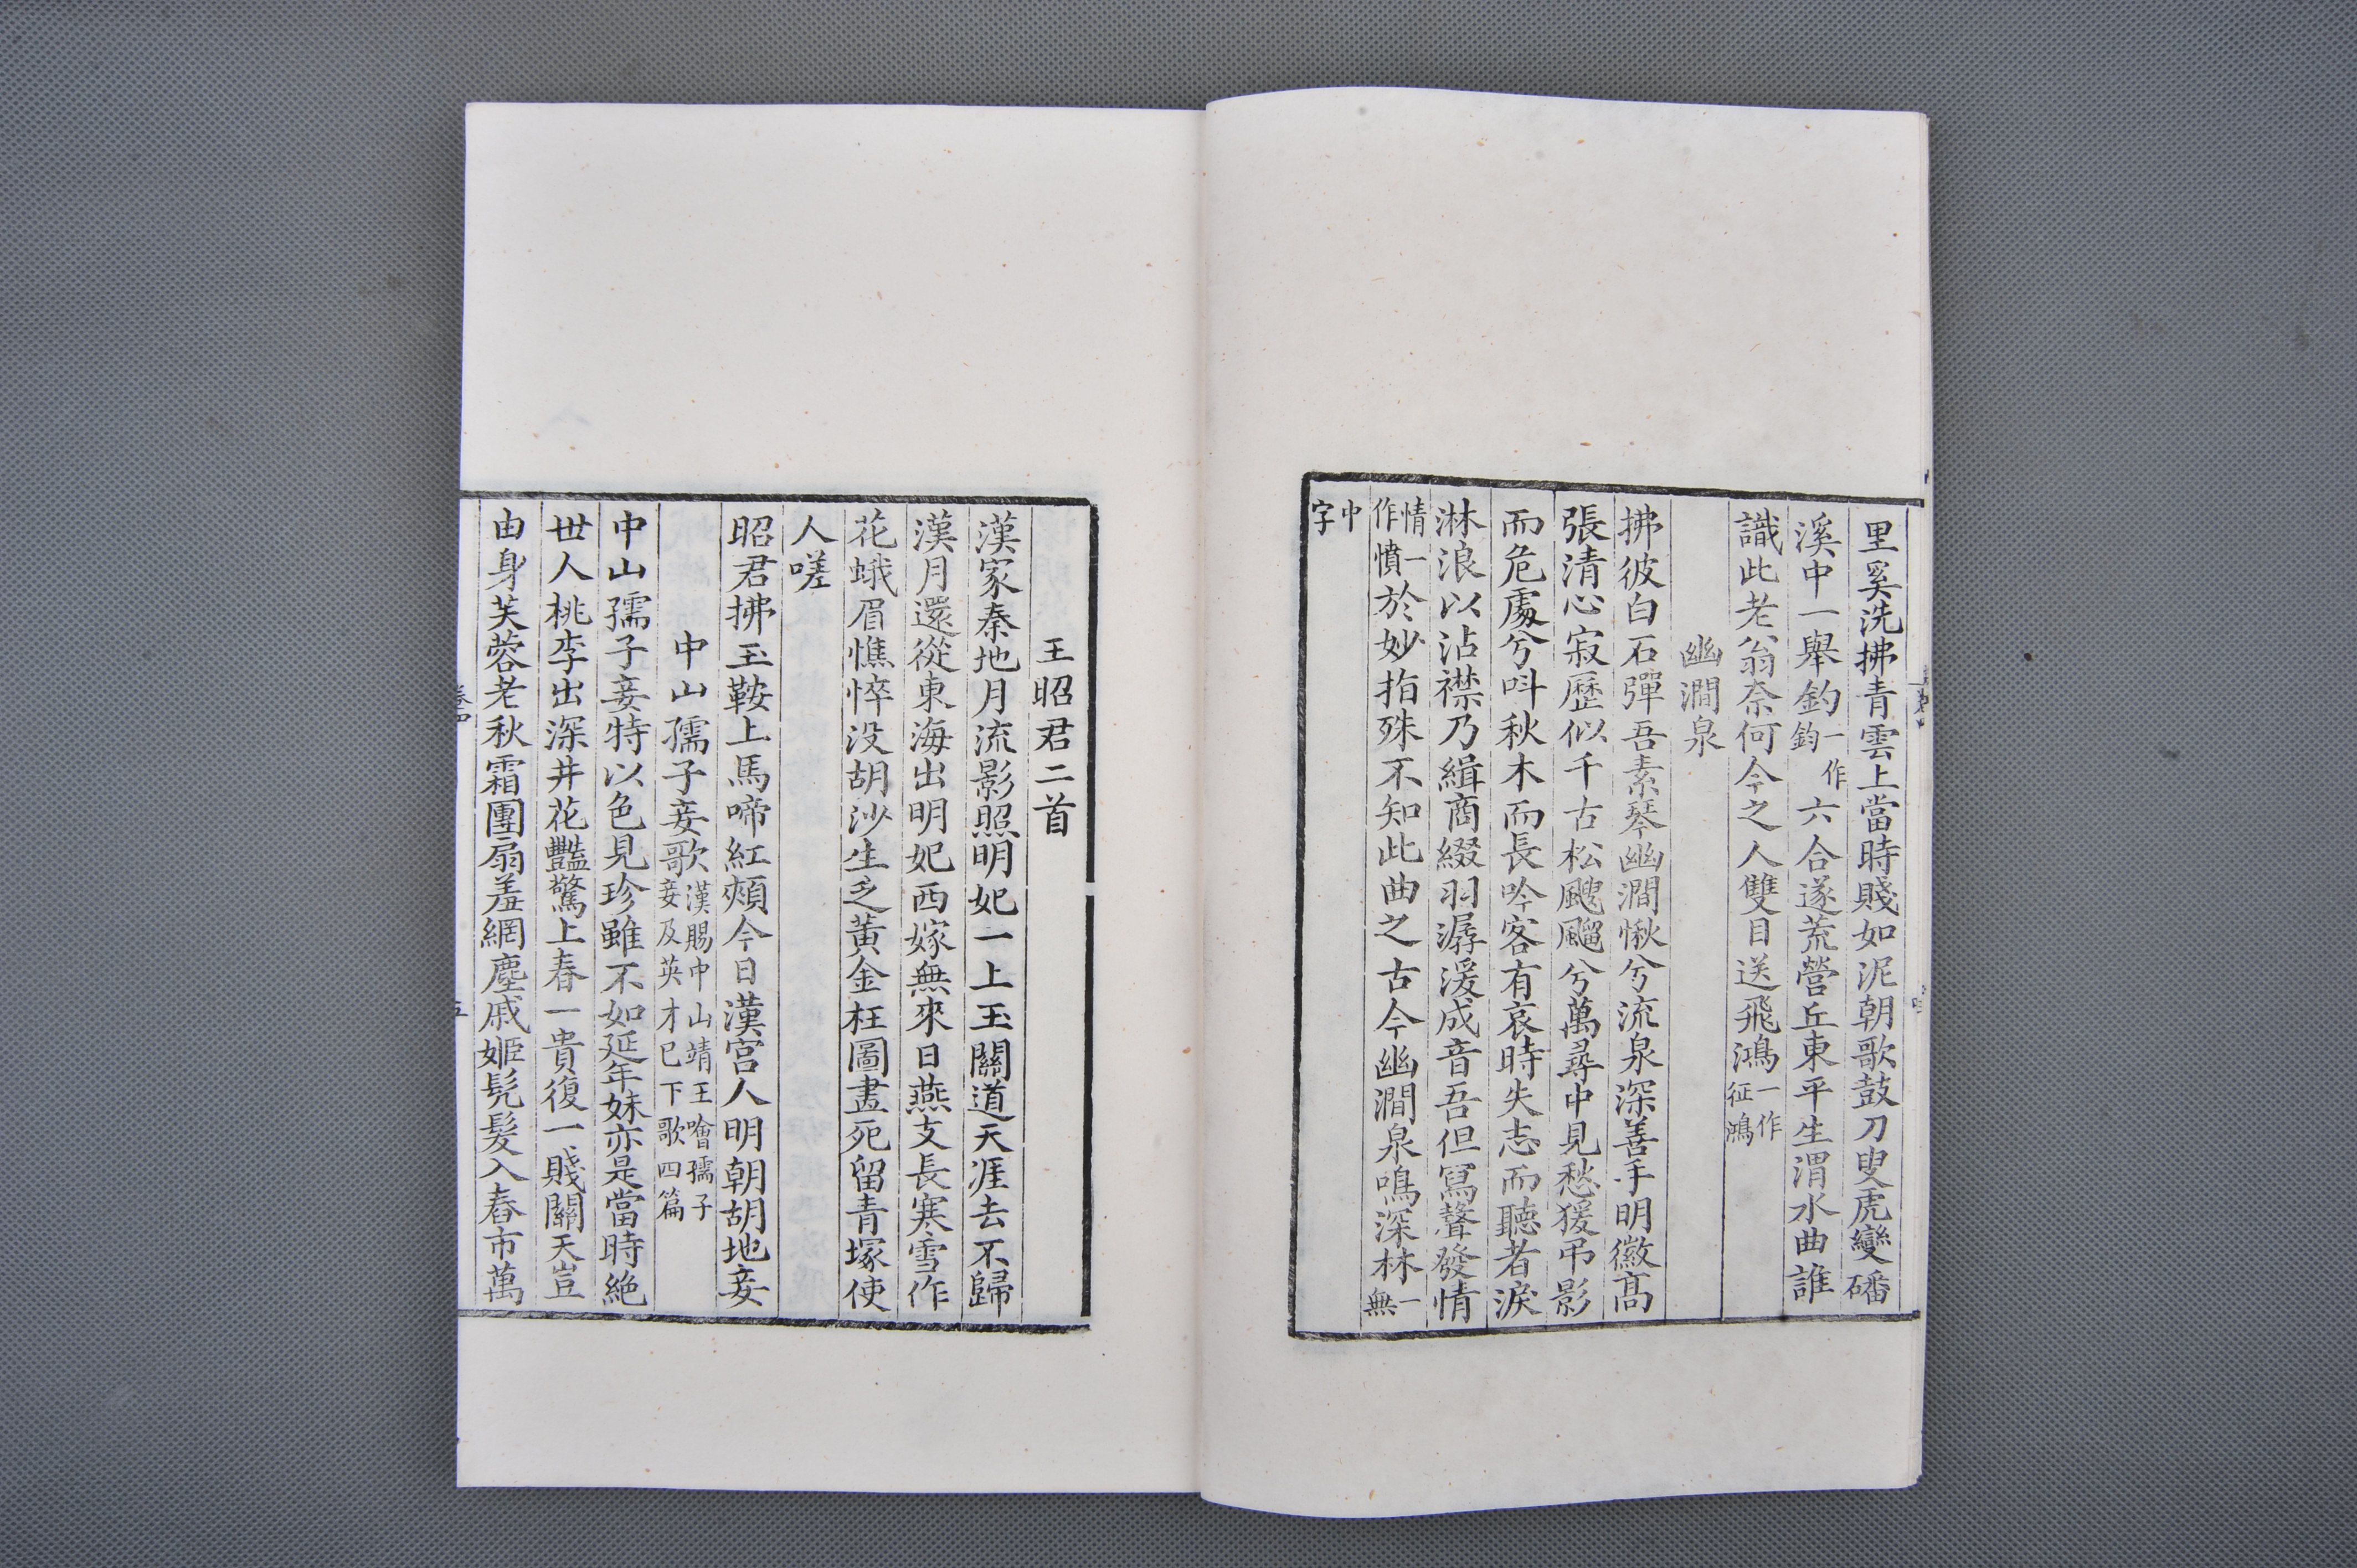 里奚洗拂青雲上當時賤如泥朝歌鼓刀叟虎變磻
溪中一舉釣一作鈞六合遂荒營丘東平生渭水曲誰
識此老翁奈何今之人雙目送飛鴻一作征鴻
幽澗泉
拂彼白石彈吾素琴幽澗愀兮流泉深善手明徽髙
張清心寂歷似千古松颼飀兮萬尋中見愁猨吊影
而危處兮呌秋木而長吟客有哀時失志而聽者淚
淋浪以沾襟乃緝商綴羽潺湲成音吾但寫聲發情
情一作憤於妙指殊不知此曲之古今幽澗泉鳴深林一無
中字
王昭君二首
漢家秦地月流影照明妃一上玉關道天涯去不歸
漢月還從東海出明妃西嫁無來日燕支長寒雪作
花蛾眉憔悴没胡沙生乏黃金枉圖畫死留青塚使
人嗟
昭君拂玉鞍上馬啼紅頰今日漢宮人明朝胡地妾
中山孺子妾歌漢賜中山靖王噲孺子妾及英才已下歌四篇
中山孺子妾特以色見珍雖不如延年妹亦是當時絶
世人桃李出深井花豔驚上春一貴復一賤關天豈
由身芙蓉老秋霜團扇羞網塵戚姬髠髮入舂市萬
卷四
五